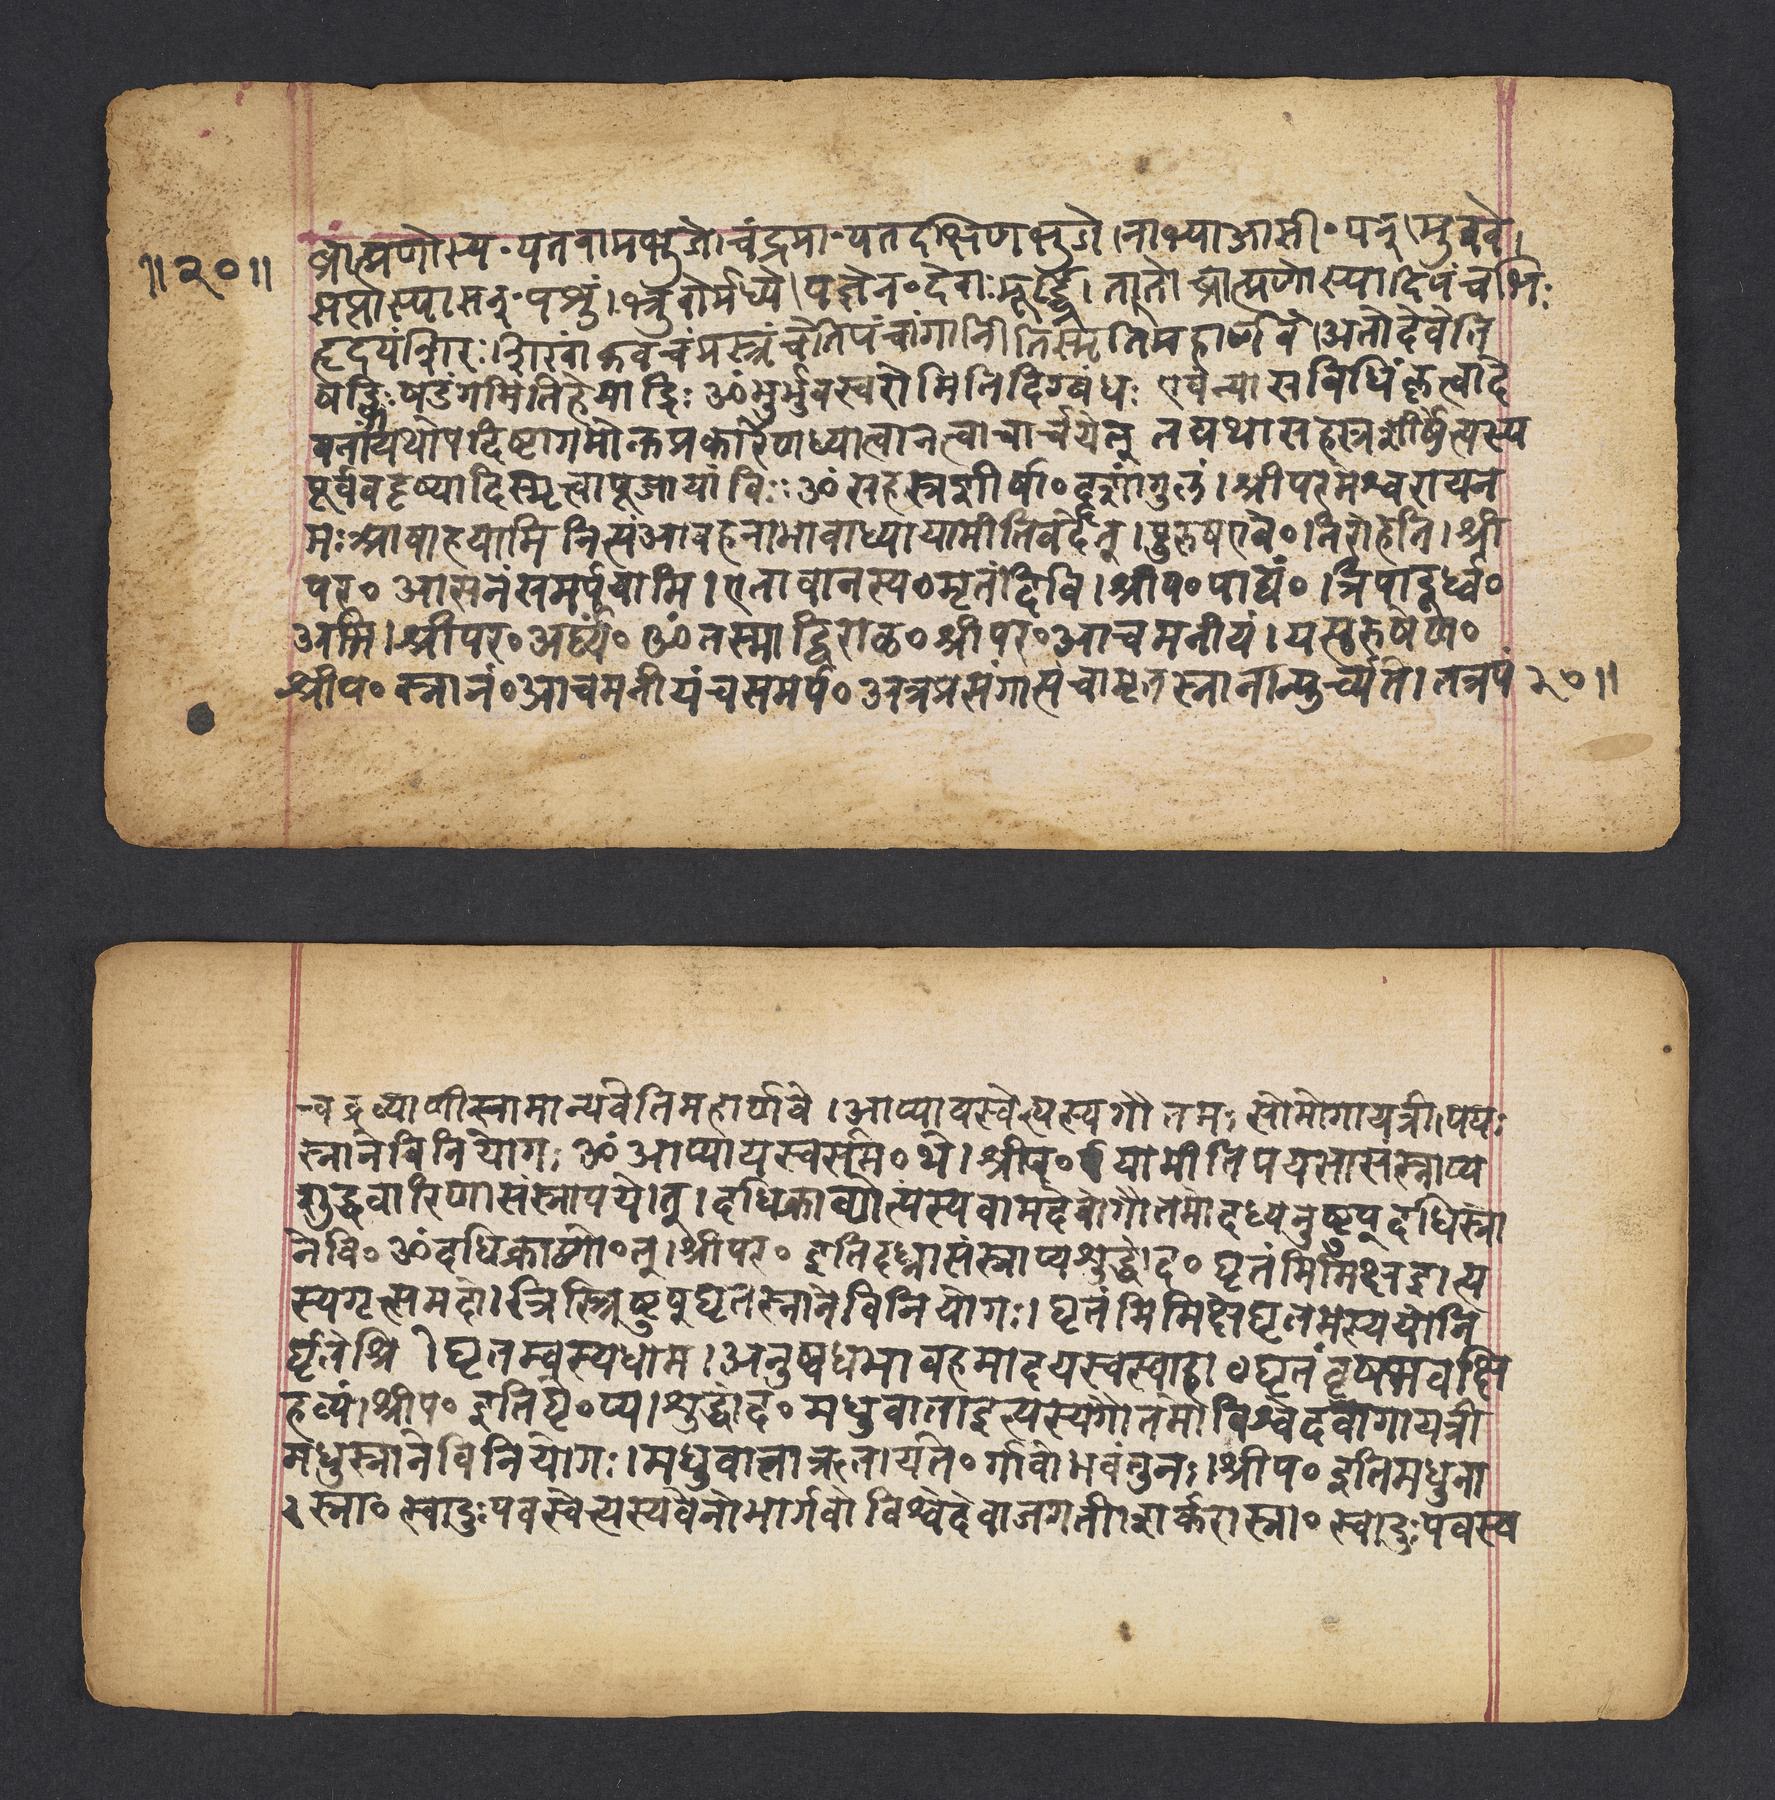 ॥२०॥
ब्राह्मणोस्य॰ पत वामभुजे। चंद्रमा॰ पत दक्षिणभुजे। नाभ्याआसी॰ पन् मुखे।
सप्तास्यासन्॰ पशुं। भ्रुवोर्मध्ये। यज्ञेन॰ देवाः मूर्द्ध्नि। ततो ब्राह्मणोस्यादि पंचभिः
हृदयं शिरः। शिखा कवचमस्त्रं चेति पंचांगानीति स्मृतिमहार्णवे। अतो देवेति
षड्भिः षडंगमिति हेमाद्रिः ॐ भुर्भुवस्वरोमिति दिग्बंधः एवंन्यासविधिं कृत्वा दे
वतां यथोपदिष्टागमोक्तप्रकारेण ध्यात्वा नत्वा चार्चयेत् तद्यथा सहस्त्रशीर्षेत्यस्य
पूर्ववदृष्यादि स्मृत्वा पूजायां विः ॐ सहस्त्रशीर्षा॰ दशांगुलं। श्रीपरमेश्वराय न
मः आवाहयामि नित्यं आवहनाभावाध्यायामीति वदेत्। पुरुषएवे॰। तिरोहति। श्री
पर॰ आसनं समर्पयामि। एतावानस्य॰ मृतं दिवि। श्रीप॰ पाद्यं॰। त्रिपादूर्ध्व॰
अभि। श्रीपर॰ अर्घ्यं॰ ॐ तस्माद्विराळ॰ श्रीपर॰ आचमनीयं। यत्पुरुषेण॰
श्रीप॰ स्नानं॰ आचमनीयं च समर्प॰ अत्र प्रसंगात्संचामृतस्नानान्युर्च्यते। तत्र पं २०॥
च द्रव्याणी स्नामान्यवेति महार्णवे। आप्यायस्वेत्यस्य गौतमः सोमोगायत्री। पयः
स्नाने विनियोगः ॐ आप्यायस्वसम॰ थे। श्रीप॰ यामीति पयसा सस्नाप्य
शुद्धवारिणा संस्नापयेतु। दधिक्राव्णोत्यस्य वामदेवोगौतमोदध्यनुष्टुप् दधिस्ना
ने वि॰ ॐ दधिक्राव्णो॰ त्। श्रीपर॰ इति दध्ना संस्नाप्य शुद्धोद॰ घृतं मिमिक्ष इत्य
स्य गृत्समदो। ग्निस्त्रिष्टुप् घृतस्नाने विनियोगः। घृतं मिमिक्षे घृतमस्य योनि
र्घृते श्रि घृतम्वस्य धाम। अनुष्वधमावह मादयस्व स्वाहा घृतं वृषभ वक्षि
हव्यं। श्रीप॰ इति घृ॰ प्य। शुद्धोद॰ मधुवाताइत्यस्य गौतमो विश्वेदेवागायत्री
मधुस्नाने विनियोगः। मधुवाताऋतायते॰ र्गावो भवंतु नः। श्रीप॰ इति मधुना
स्ना॰ स्वादुः पवस्वेत्यस्य वेनो भार्गवो विश्वेदेवा जगती। शर्करास्ना॰ स्वादुः पवस्व